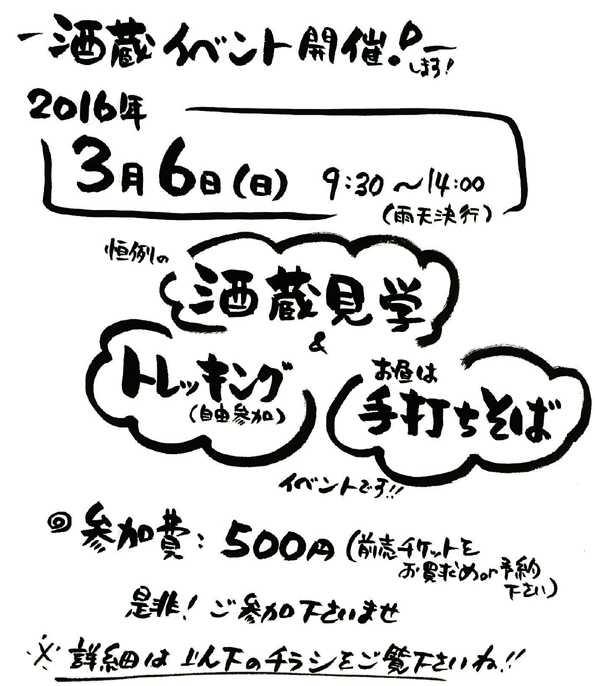 酒蔵イベント開催！
します！
2016年
3月6日(日) 9:30〜14:00
(雨天決行)
恒例の
酒蔵見学
&
トレッキング
(自由参加)
お昼は
手打ちそば
イベントです!!
◎参加費：500円(前売チケットを
お買求めor予約
下さい)
是非！ご参加下さいませ
※詳細は以下のチラシをご覧下さいね!!